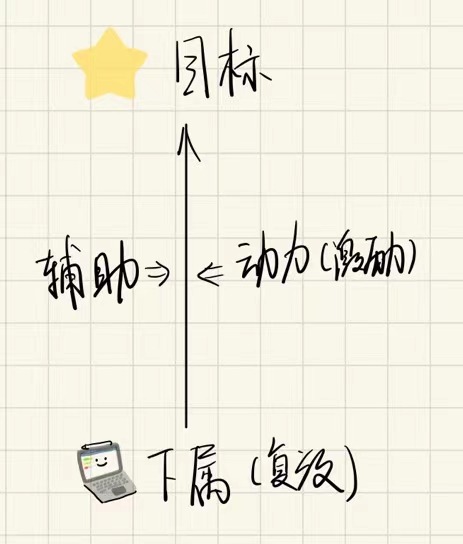 目标
辅助⇒ ⇐动力(激励)
下属(复级)